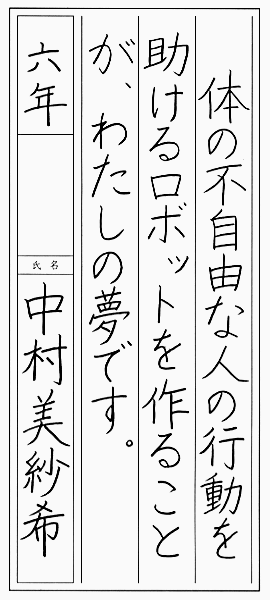 体の不自由な人の行動を
助けるロボットを作ること
が、わたしの夢です。
六年
氏名
中村美紗希